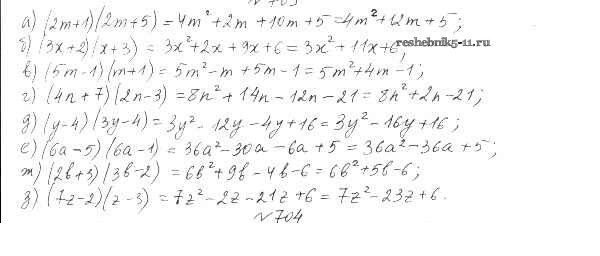 № 703
а) (2m+1)(2m+5) = 4m² + 2m + 10m + 5 = 4m² + 12m + 5;
б) (3x+2)(x+3) = 3x² + 2x + 9x + 6 = 3x² + 11x + 6;
reshebnik5-11.ru
в) (5m-1)(m+1) = 5m² - m + 5m - 1 = 5m² + 4m - 1;
г) (4n+7)(2n-3) = 8n² + 14n - 12n - 21 = 8n² + 2n - 21;
д) (y-4)(3y-4) = 3y² - 12y - 4y + 16 = 3y² - 16y + 16;
е) (6a-5)(6a-1) = 36a² - 30a - 6a + 5 = 36a² - 36a + 5;
ж) (2b+3)(3b-2) = 6b² + 9b - 4b - 6 = 6b² + 5b - 6;
з) (7z-2)(z-3) = 7z² - 2z - 21z + 6 = 7z² - 23z + 6.
№ 704